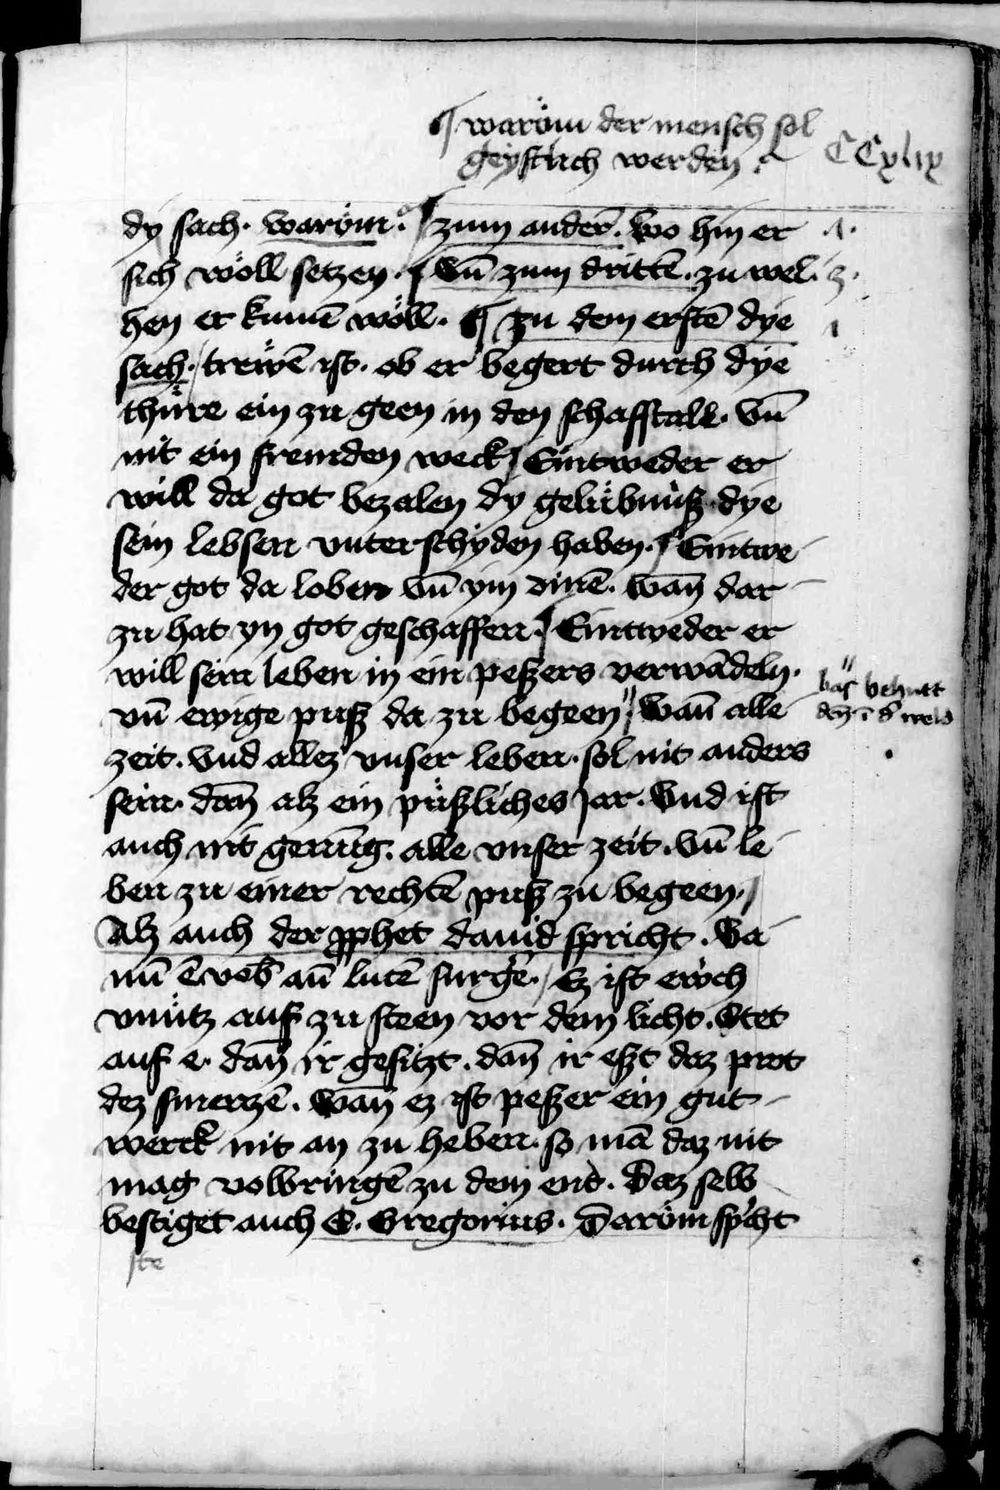 ¶ waröm der mensch sol
geystlich werden
CCxlix
dy sach. waröm. ¶ zum anderꝰ. wo hin er
sich wöll setzen. ¶ Vn̄ zum drittē. zu wel- 2.
hen er kumē wöll. ¶ Zu dem erstē dye 1
sach. trewē ist. ob er begert durch dye
thüre ein zu geen in den schaffstall. Vn̄
nit ein fremden weck / Eintweder er
will da got bezalen dy gelübnüß dye
sein lebsen vnterschyden haben. / Eintwe-
der got da loben vn̄ ym dinē. wan̄ dar-
zu hat yn got geschaffen. / Eintweder er
will sein leben in ein peßers verwādeln.
vn̄ ewige puß da zu begeen // Wan̄ alle
bas behutt
den ī d' weld
zeit. Vnd allez vnser leben. sol nit anders
sein. dan̄ alz ein püßliches Jar. Vnd ist
auch nit genūg. alle vnser zeit. vn̄ le-
ben zu einer rechtē puß zu begeen. /
Alz auch der ꝓphet dauid spricht. Va-
nū ē vob̄ an̄ lucē surge͛. / Ez ist eẅch
vnütz auf zu steen vor dem licht. Stet
auf e. dan̄ ir gesitzt. dan̄ ir eßt daz prot
dez smerczē. Wan̄ ez ist peßer ein gut-
werck nit an zu heben. so mā daz nit
mag volbringē zu dem end. Daz selb
bestiget auch S. Gregorius. Daröm sp͛cht
ste